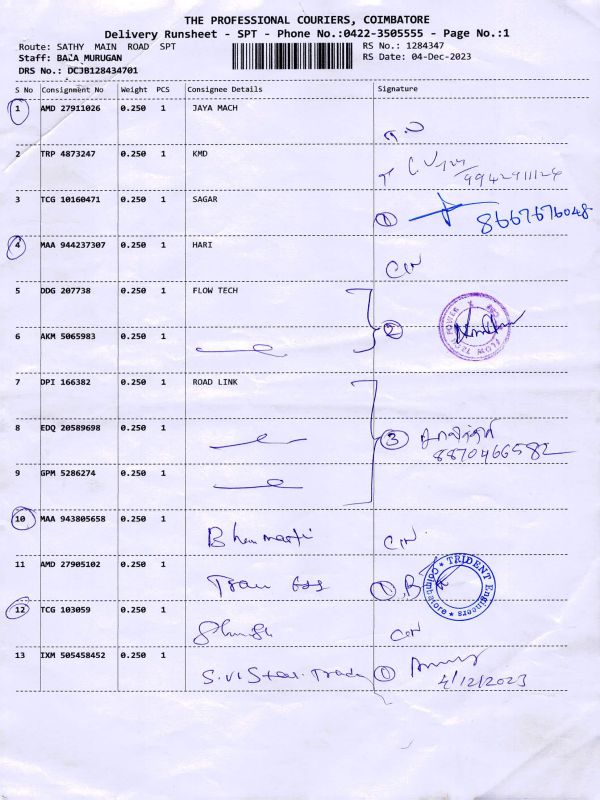 THE PROFESSIONAL COURIERS, COIMBATORE
Delivery Runsheet - SPT - Phone No.:0422-3505555 - Page No.:1
Route: SATHY MAIN ROAD SPT RS No.: 1284347
Staff: BALA MURUGAN RS Date: 04-Dec-2023
DRS No.: DCJB128434701
S No Consignment No Weight PCS Consignee Details Signature
1 AMD 27911026 0.250 1 JAYA MACH
2 TRP 4873247 0.250 1 KMD
9942911124
3 TCG 10160471 0.250 1 SAGAR
1 8667676048
4 MAA 944237307 0.250 1 HARI
5 DDG 207738 0.250 1 FLOW TECH
2
FLOW TECH POWER
6 AKM 5065983 0.250 1
7 DPI 166382 0.250 1 ROAD LINK
8 EDQ 20589698 0.250 1
3
8870466582
9 GPM 5286274 0.250 1
10 MAA 943805658 0.250 1
11 AMD 27905102 0.250 1
1
TRIDENT Engineers
Coimbatore
12 TCG 103059 0.250 1
13 IXM 505458452 0.250 1
1
4/12/2023